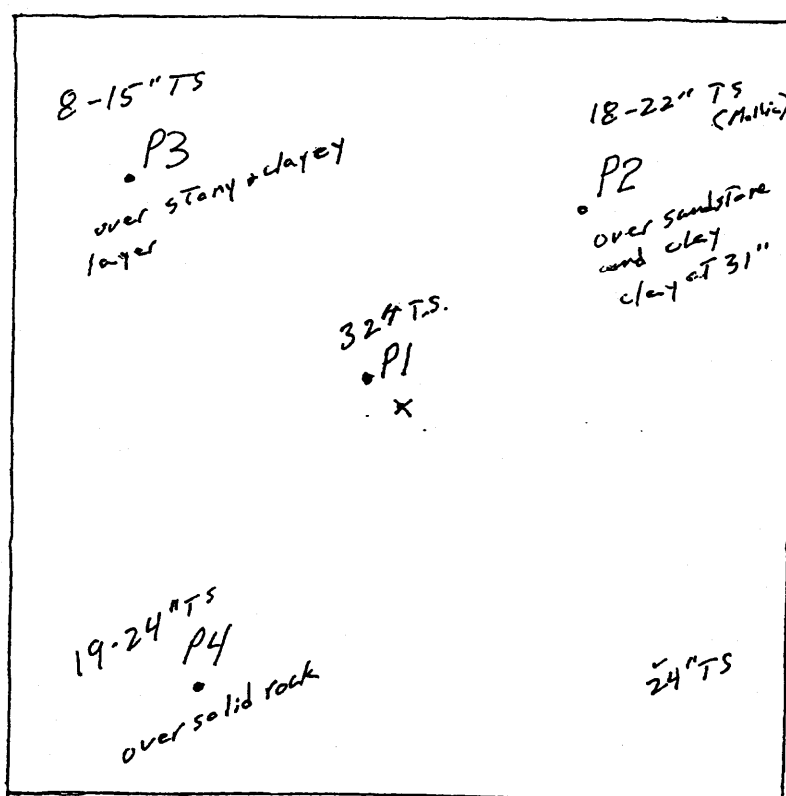 8-15" TS
P3
over stony + clayey
layer
18-22" TS
(Mollic)
P2
over sandstone
and clay
clay at 31"
32" T.S.
P1
x
19-24" TS
P4
over solid rock
24" TS